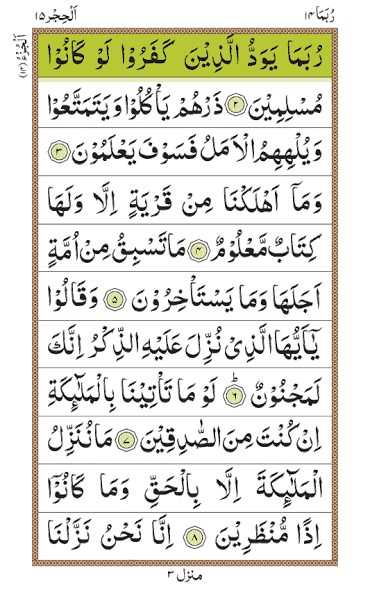 رُبَمَا ١٤
اَلْحِجْر ١٥
اَلْجُزْءُ (١٤)
رُبَمَا يَوَدُّ الَّذِيْنَ كَفَرُوْا لَوْ كَانُوْا
مُسْلِمِيْنَ ۝٢ ذَرْهُمْ يَاْكُلُوْا وَيَتَمَتَّعُوْا
وَيُلْهِهِمُ الْاَمَلُ فَسَوْفَ يَعْلَمُوْنَ ۝٣
وَمَاۤ اَهْلَكْنَا مِنْ قَرْيَةٍ اِلَّا وَلَهَا
كِتَابٌ مَّعْلُوْمٌ ۝٤ مَا تَسْبِقُ مِنْ اُمَّةٍ
اَجَلَهَا وَمَا يَسْتَاْخِرُوْنَ ۝٥ وَقَالُوْا
يٰۤاَيُّهَا الَّذِىْ نُزِّلَ عَلَيْهِ الذِّكْرُ اِنَّكَ
لَمَجْنُوْنٌ ۝٦ؕ لَوْ مَا تَاْتِيْنَا بِالْمَلٰٓئِكَةِ
اِنْ كُنْتَ مِنَ الصّٰدِقِيْنَ ۝٧ مَا نُنَزِّلُ
الْمَلٰٓئِكَةَ اِلَّا بِالْحَقِّ وَمَا كَانُوْۤا
اِذًا مُّنْظَرِيْنَ ۝٨ اِنَّا نَحْنُ نَزَّلْنَا
منزل ٣